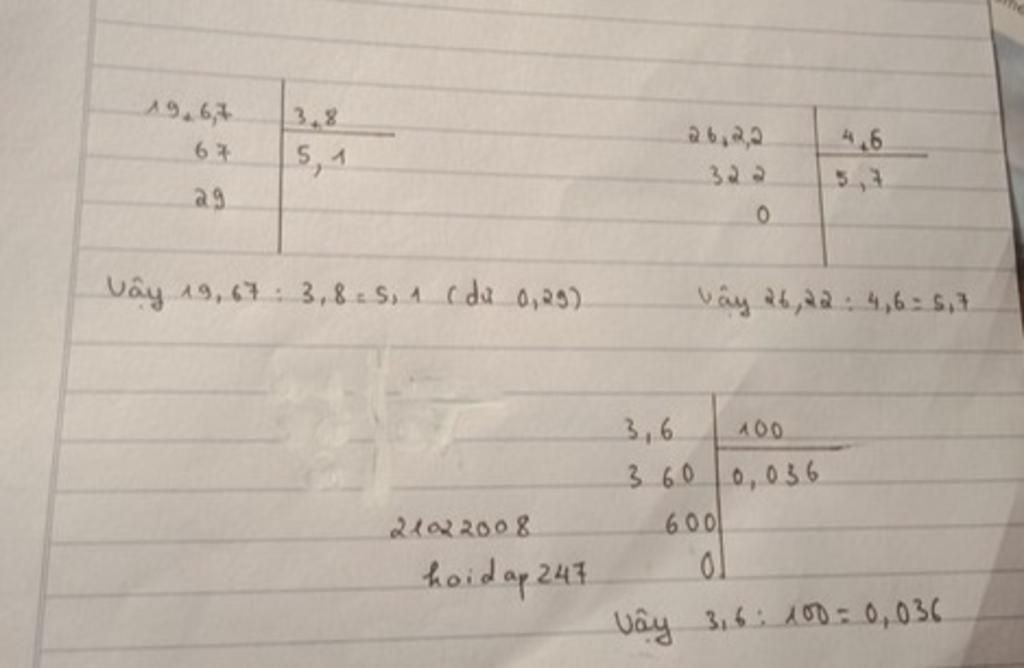 19,6,7 3,8
67 5,1
29
Vậy 19,67 : 3,8 = 5,1 (dư 0,29)
26,2,2 4,6
322 5,7
0
Vậy 26,22 : 4,6 = 5,7
3,6 100
3 60 0,036
600
0
21022008
hoidap247
Vậy 3,6 : 100 = 0,036